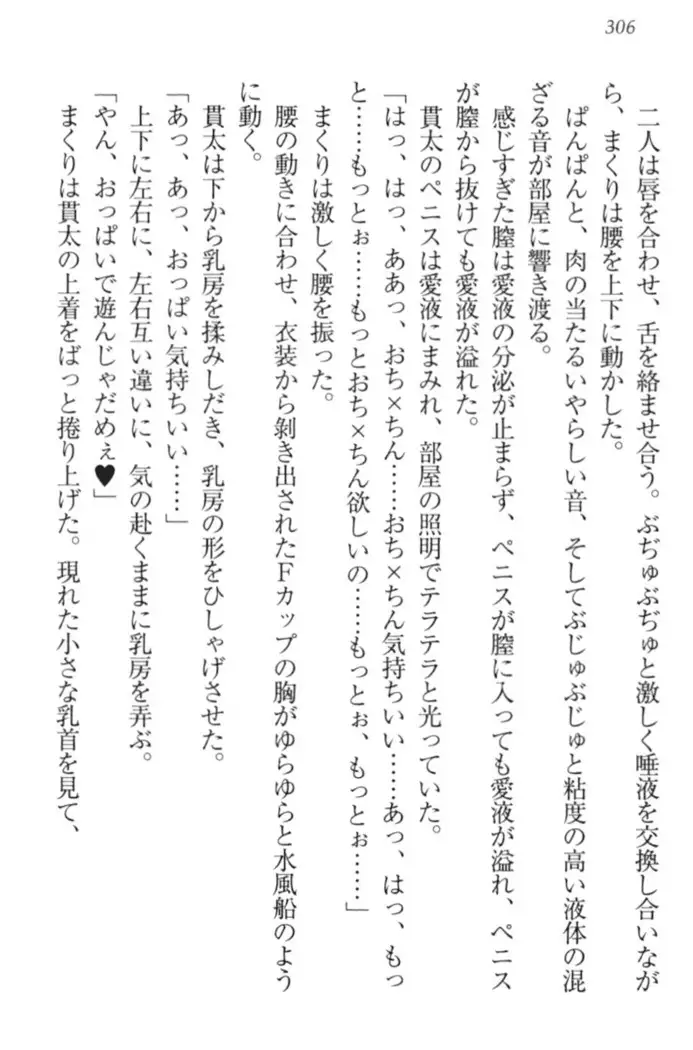 306
二人は唇を合わせ、舌を絡ませ合う。ぶぢゅぶぢゅと激しく唾液を交換し合いなが
ら、まくりは腰を上下に動かした。
ぱんぱんと、肉の当たるいやらしい音、そしてぶじゅぶじゅと粘度の高い液体の混
ざる音が部屋に響き渡る。
感じすぎた膣は愛液の分泌が止まらず、ペニスが膣に入っても愛液が溢れ、ペニス
が膣から抜けても愛液が溢れた。
貫太のペニスは愛液にまみれ、部屋の照明でテラテラと光っていた。
「はっ、はっ、ああっ、おち×ちん……おち×ちん気持ちいい……あっ、はっ、もっ
と……もっとぉ……もっとおち×ちん欲しいの……もっとぉ、もっとぉ……」
まくりは激しく腰を振った。
腰の動きに合わせ、衣装から剝き出されたＦカップの胸がゆらゆらと水風船のよう
に動く。
貫太は下から乳房を揉みしだき、乳房の形をひしゃげさせた。
「あっ、あっ、おっぱい気持ちいい……」
上下に左右に、左右互い違いに、気の赴くままに乳房を弄ぶ。
「やん、おっぱいで遊んじゃだめぇ♥」
まくりは貫太の上着をばっと捲り上げた。現れた小さな乳首を見て、